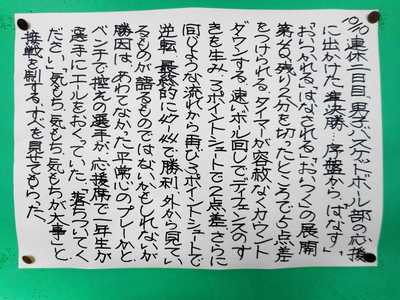 10/10連休二日目、男子バスケットボール部の応援
に出かけた。準決勝…序盤から「はなす」
「おいつかれる」「はなされる」「おいつく」の展開
第4Q残り2分を切ったところで4点差
をつけられる。タイマーが容赦なくカウント
ダウンする。速いボール回しでディフェンスのす
きを生み、3ポイントシュートで2点差、さらに
同じような流れから再び3ポイントシュートで
逆転、最終的に
で勝利。外から見てい
るものが語るものではないかもしれないが
勝因は、あわてなかった平常心のプレーかと
ベンチで控えの選手が、応援席で一年生が
選手にエールをおくっていた。「落ちついてく
ださい」「気もち、気もち、気もちが大事」と
接戦を制する、すべを見せてもらった。